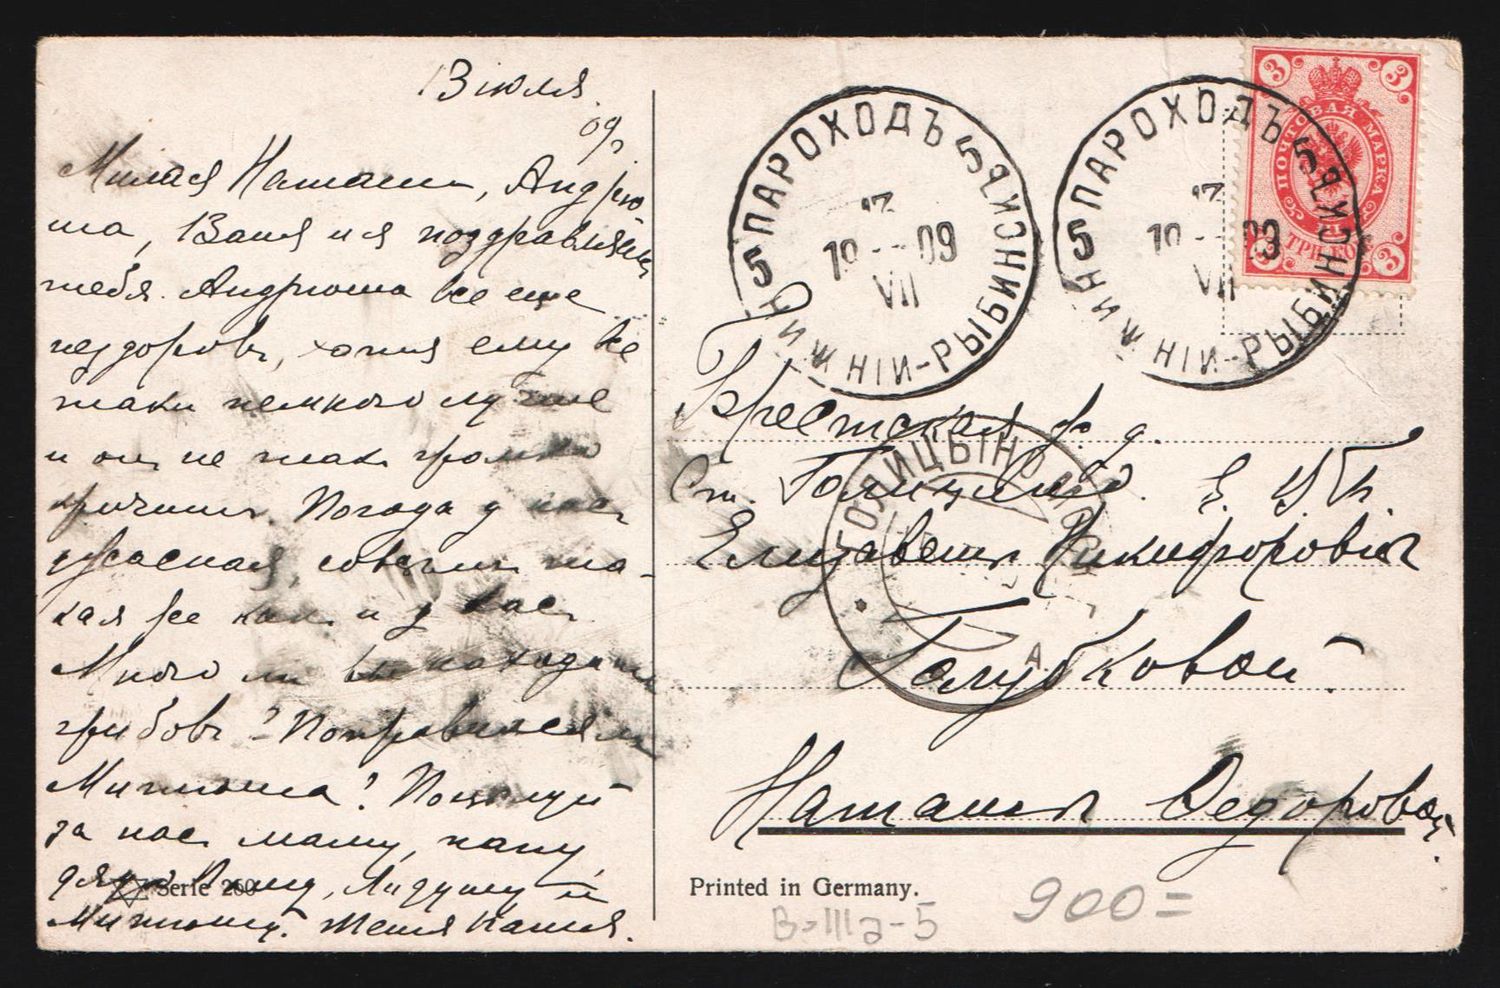 13 июля
09 г
Милая Наташа, Андрю
ша, Ваня и я поздравляем
тебя. Андрюша все еще
нездоровъ, хотя ему все
таки немного лучше
и онъ не такъ громко
кричитъ. Погода у насъ
ужасная, совсемъ та-
кая же какъ и у васъ
Много ли вы находите
грибовъ? Поправился ли
Митюша? Поцелуй
за насъ маму, папу,
дядю Ваню, Лидушу и
Митюшу. Женя
Serie 260
ПАРОХОДЪ
5 НИЖНІЙ-РЫБИНСКЪ 5
19 - 09
VII
ПАРОХОДЪ
5 НИЖНІЙ-РЫБИНСКЪ 5
19 - 09
VII
3 3
ПОЧТОВАЯ МАРКА
ТРИ КОП
3 3
Брестская ж. д.
Ст. Голицыно.
ГОЛИЦЫНО
Елизаветы Никифоровны
Голубковой.
А
Наташе Федоровой.
Printed in Germany.
B-IIIa-5
900=